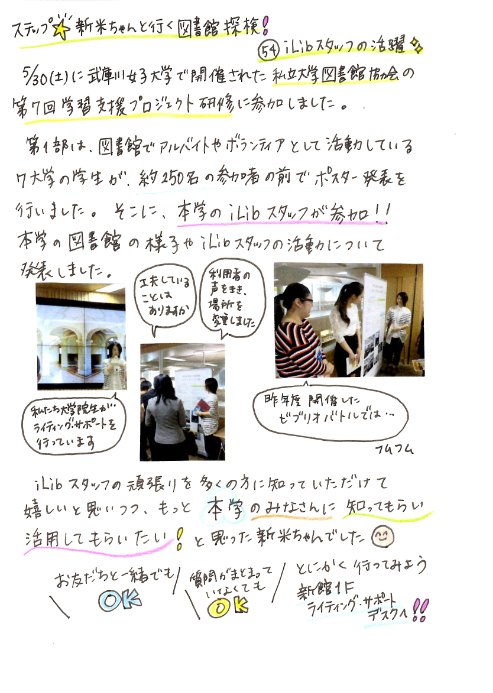 ステップ☆新米ちゃんと行く図書館探検!
㊴ iLibスタッフの活躍
5/30(土)に武庫川女子大学で開催された私立大学図書館協会の
第7回学習支援プロジェクト研修に参加しました。
第1部は、図書館でアルバイトやボランティアとして活動している
7大学の学生が、約250名の参加者の前でポスター発表を
行いました。そこに、本学のiLibスタッフが参加!!
本学の図書館の様子やiLibスタッフの活動について
発表しました。
工夫している
ことは
ありますか
利用者の
声をきき、
場所を
変更しました
私たち大学院生が
ライティングサポートを
行っています
昨年度開催した
ビブリオバトルでは…
フムフム
iLibスタッフの頑張りを多くの方に知っていただけて
嬉しいと思いつつ、もっと本学のみなさんに知ってもらい
活用してもらいたい!と思った新米ちゃんでした
お友だちと一緒でも
OK
質問がまとまって
いなくても
OK
とにかく行ってみよう
新館1F
ライティング・サポート
デスクへ!!